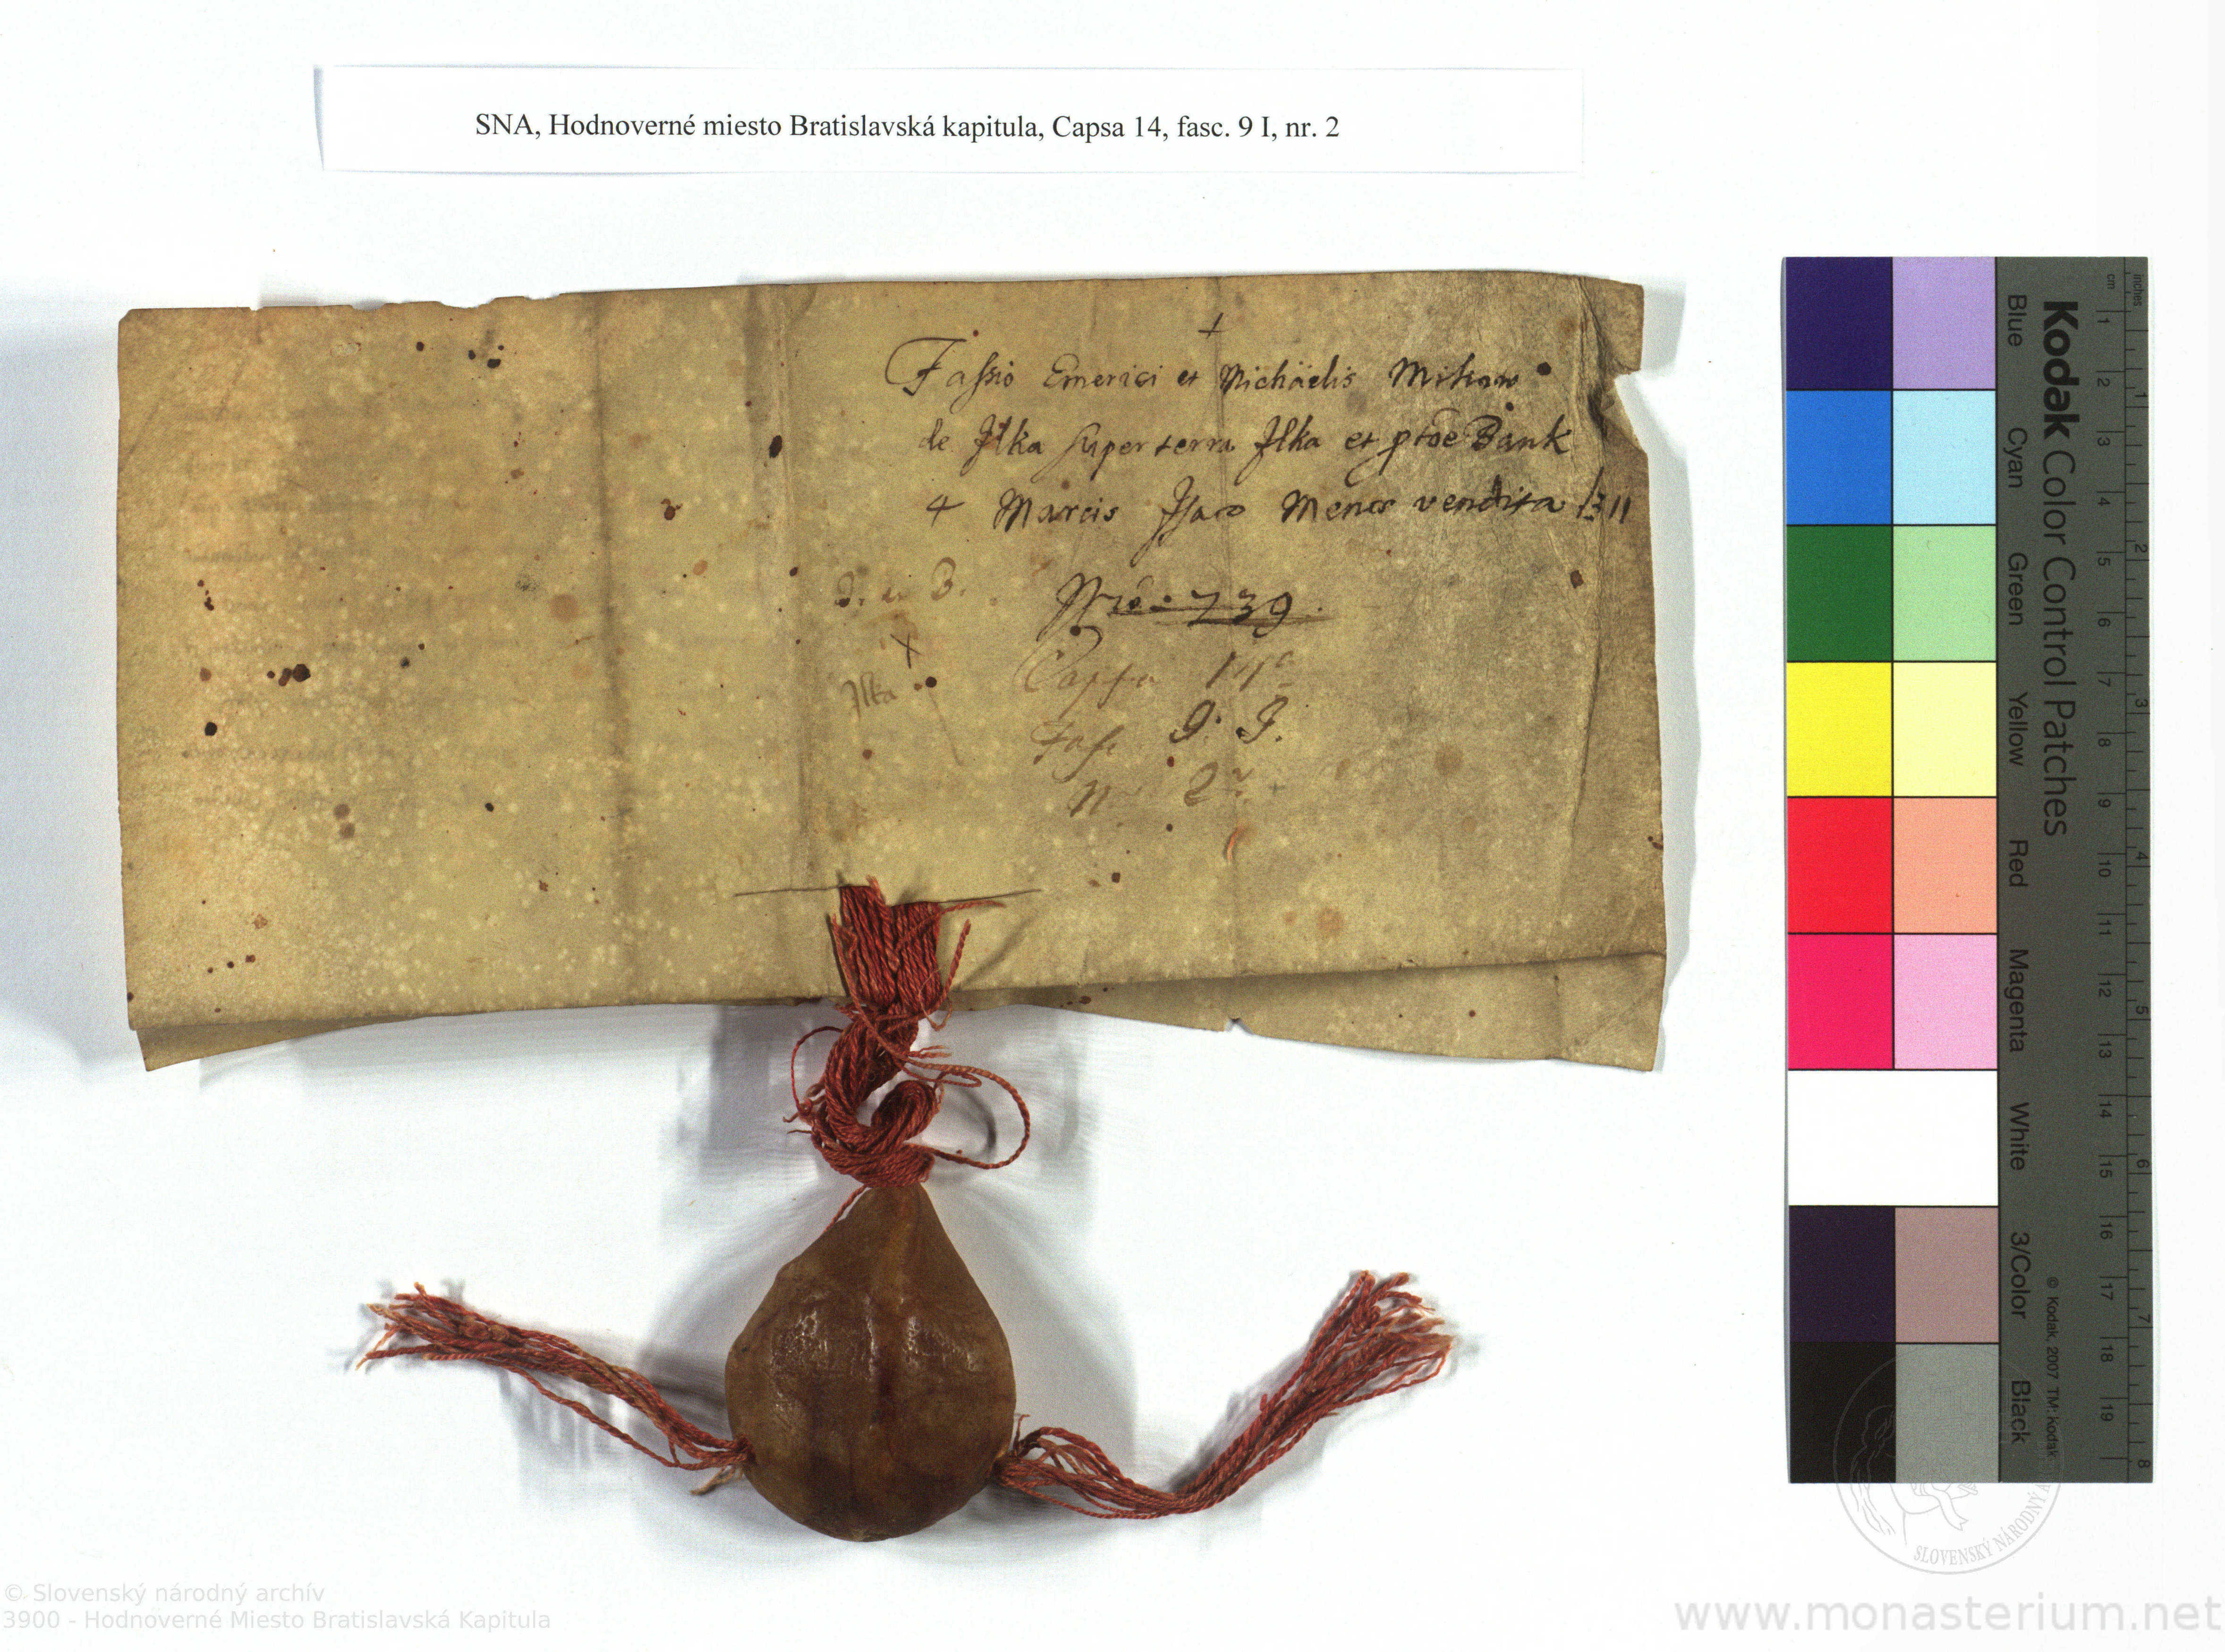 SNA, Hodnoverné miesto Bratislavská kapitula, Capsa 14, fasc. 9 I, nr. 2
+
Fassio Emerici et Michäelis
de Ilka super terra Ilka et ptõe Bank
4 Marcis vendita 1311
Nrõ. 739.
Capsa 14a
Ilka
Fasc. 9. I.
N 2
Kodak Color Control Patches
Blue
Cyan
Green
Yellow
Red
Magenta
White
3/Color
Black
© Kodak, 2007 TM: Kodak
cm 1 2 3 4 5 6 7 8 9 10 11 12 13 14 15 16 17 18 19
inches 1 2 3 4 5 6 7 8
SLOVENSKÝ NÁRODNÝ
© Slovenský národný archív
3900 - Hodnoverné Miesto Bratislavská Kapitula
www.monasterium.net